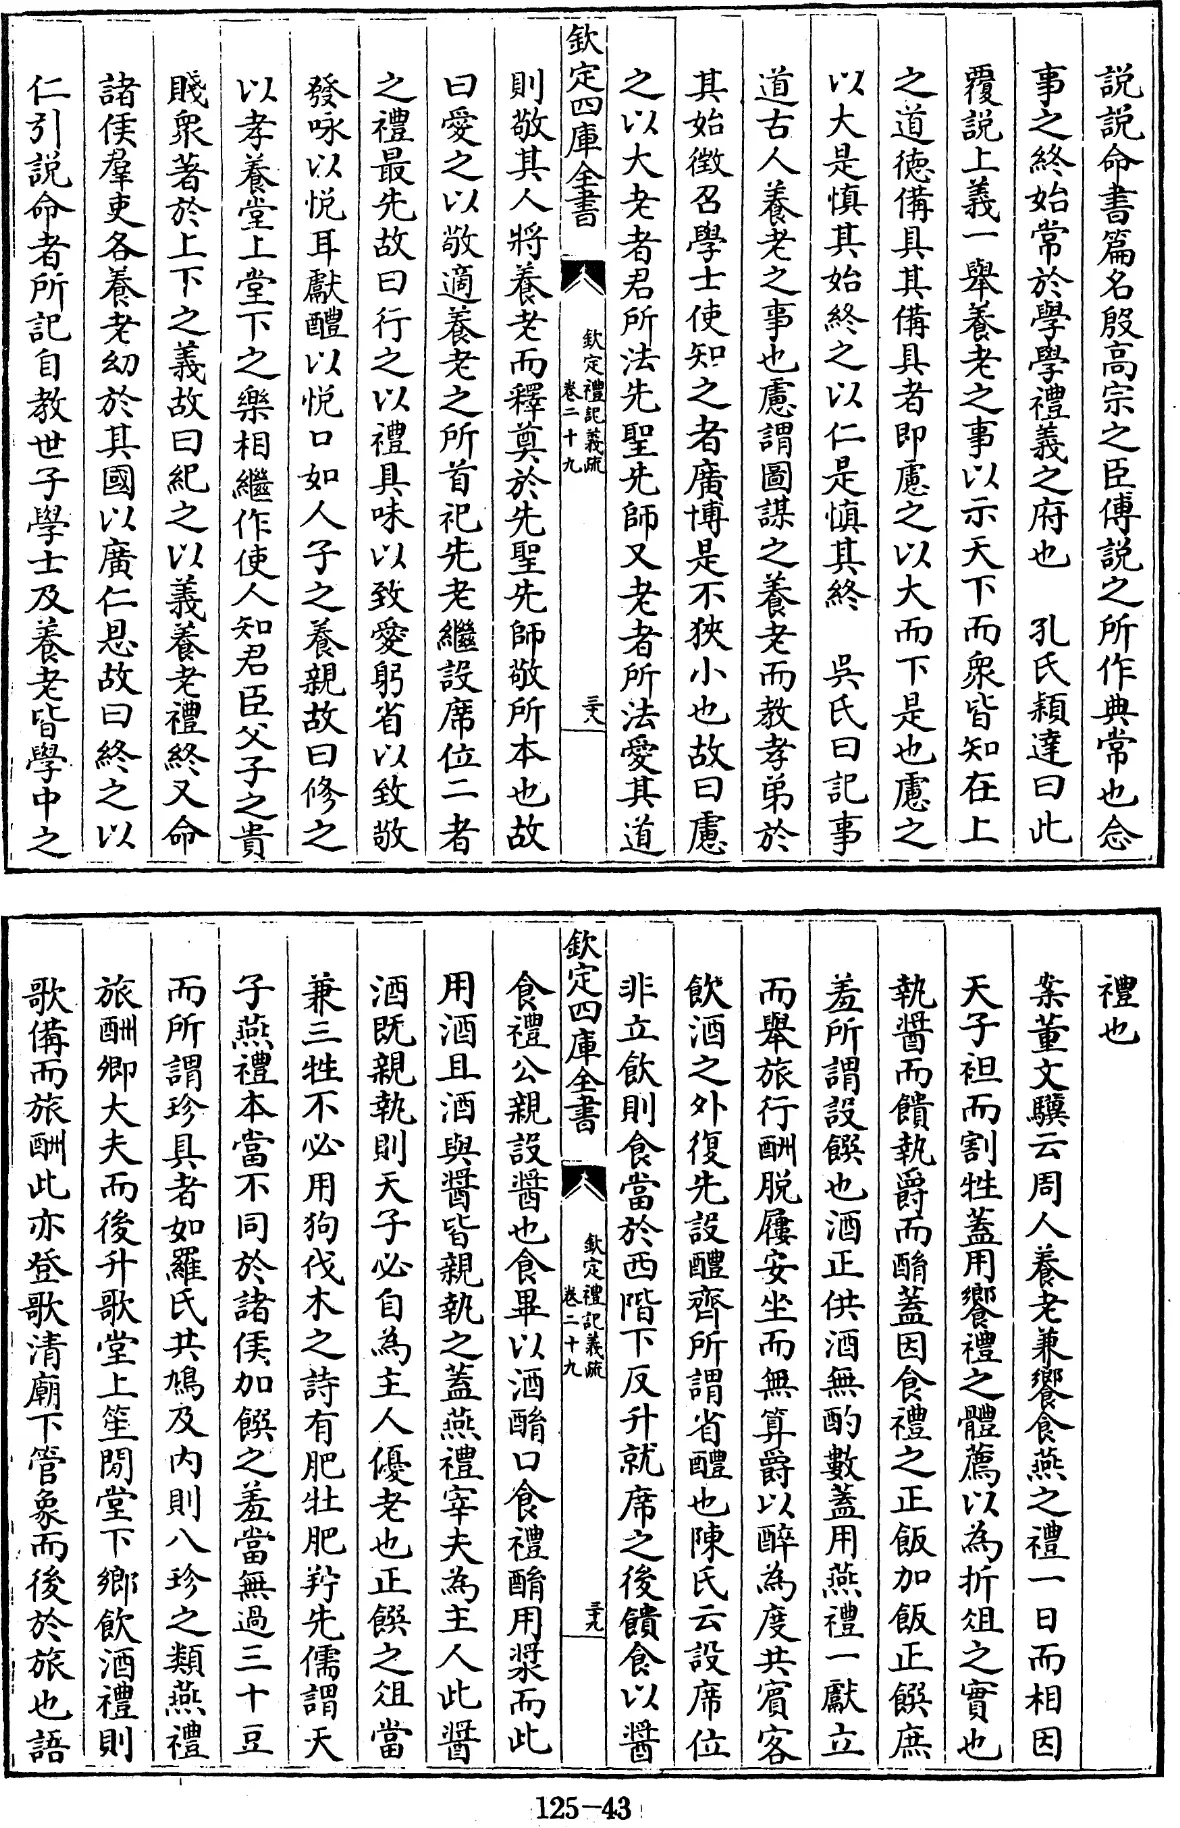 説説命書篇名殷高宗之臣傅説之所作典常也念
事之終始常於學學禮義之府也 孔氏穎達曰此
覆説上義一舉養老之事以示天下而衆皆知在上
之道德備具其備具者即慮之以大而下是也慮之
以大是慎其始終之以仁是慎其終 吳氏曰記事
道古人養老之事也慮謂圖謀之養老而教孝弟於
其始徵召學士使知之者廣博是不狹小也故曰慮
之以大老者君所法先聖先師又老者所法愛其道
欽定四庫全書 欽定禮記義疏 卷二十九 三八
則敬其人將養老而釋奠於先聖先師敬所本也故
曰愛之以敬適養老之所首祀先老繼設席位二者
之禮最先故曰行之以禮具味以致愛躬省以致敬
發咏以悦耳獻醴以悦口如人子之養親故曰修之
以孝養堂上堂下之樂相繼作使人知君臣父子之貴
賤衆著於上下之義故曰紀之以義養老禮終又命
諸侯羣吏各養老幼於其國以廣仁恩故曰終之以
仁引説命者所記自教世子學士及養老皆學中之
禮也
案董文驥云周人養老兼饗食燕之禮一日而相因
天子袒而割牲蓋用饗禮之體薦以為折俎之實也
執醬而饋執爵而酳蓋因食禮之正飯加飯正饌庶
羞所謂設饌也酒正供酒無酌數蓋用燕禮一獻立
而舉旅行酬脱屨安坐而無算爵以醉為度共賓客
飲酒之外復先設醴齊所謂省醴也陳氏云設席位
非立飲則食當於西階下反升就席之後饋食以醬
欽定四庫全書 欽定禮記義疏 卷二十九 三九
食禮公親設醬也食畢以酒酳口食禮酳用漿而此
用酒且酒與醬皆親執之蓋燕禮宰夫為主人此醬
酒既親執則天子必自為主人優老也正饌之俎當
兼三牲不必用狗伐木之詩有肥牡肥羜先儒謂天
子燕禮本當不同於諸侯加饌之羞當無過三十豆
而所謂珍具者如羅氏共鳩及内則八珍之類燕禮
旅酬卿大夫而後升歌堂上笙閒堂下鄉飲酒禮則
歌備而旅酬此亦登歌清廟下管象而後於旅也語
125-43